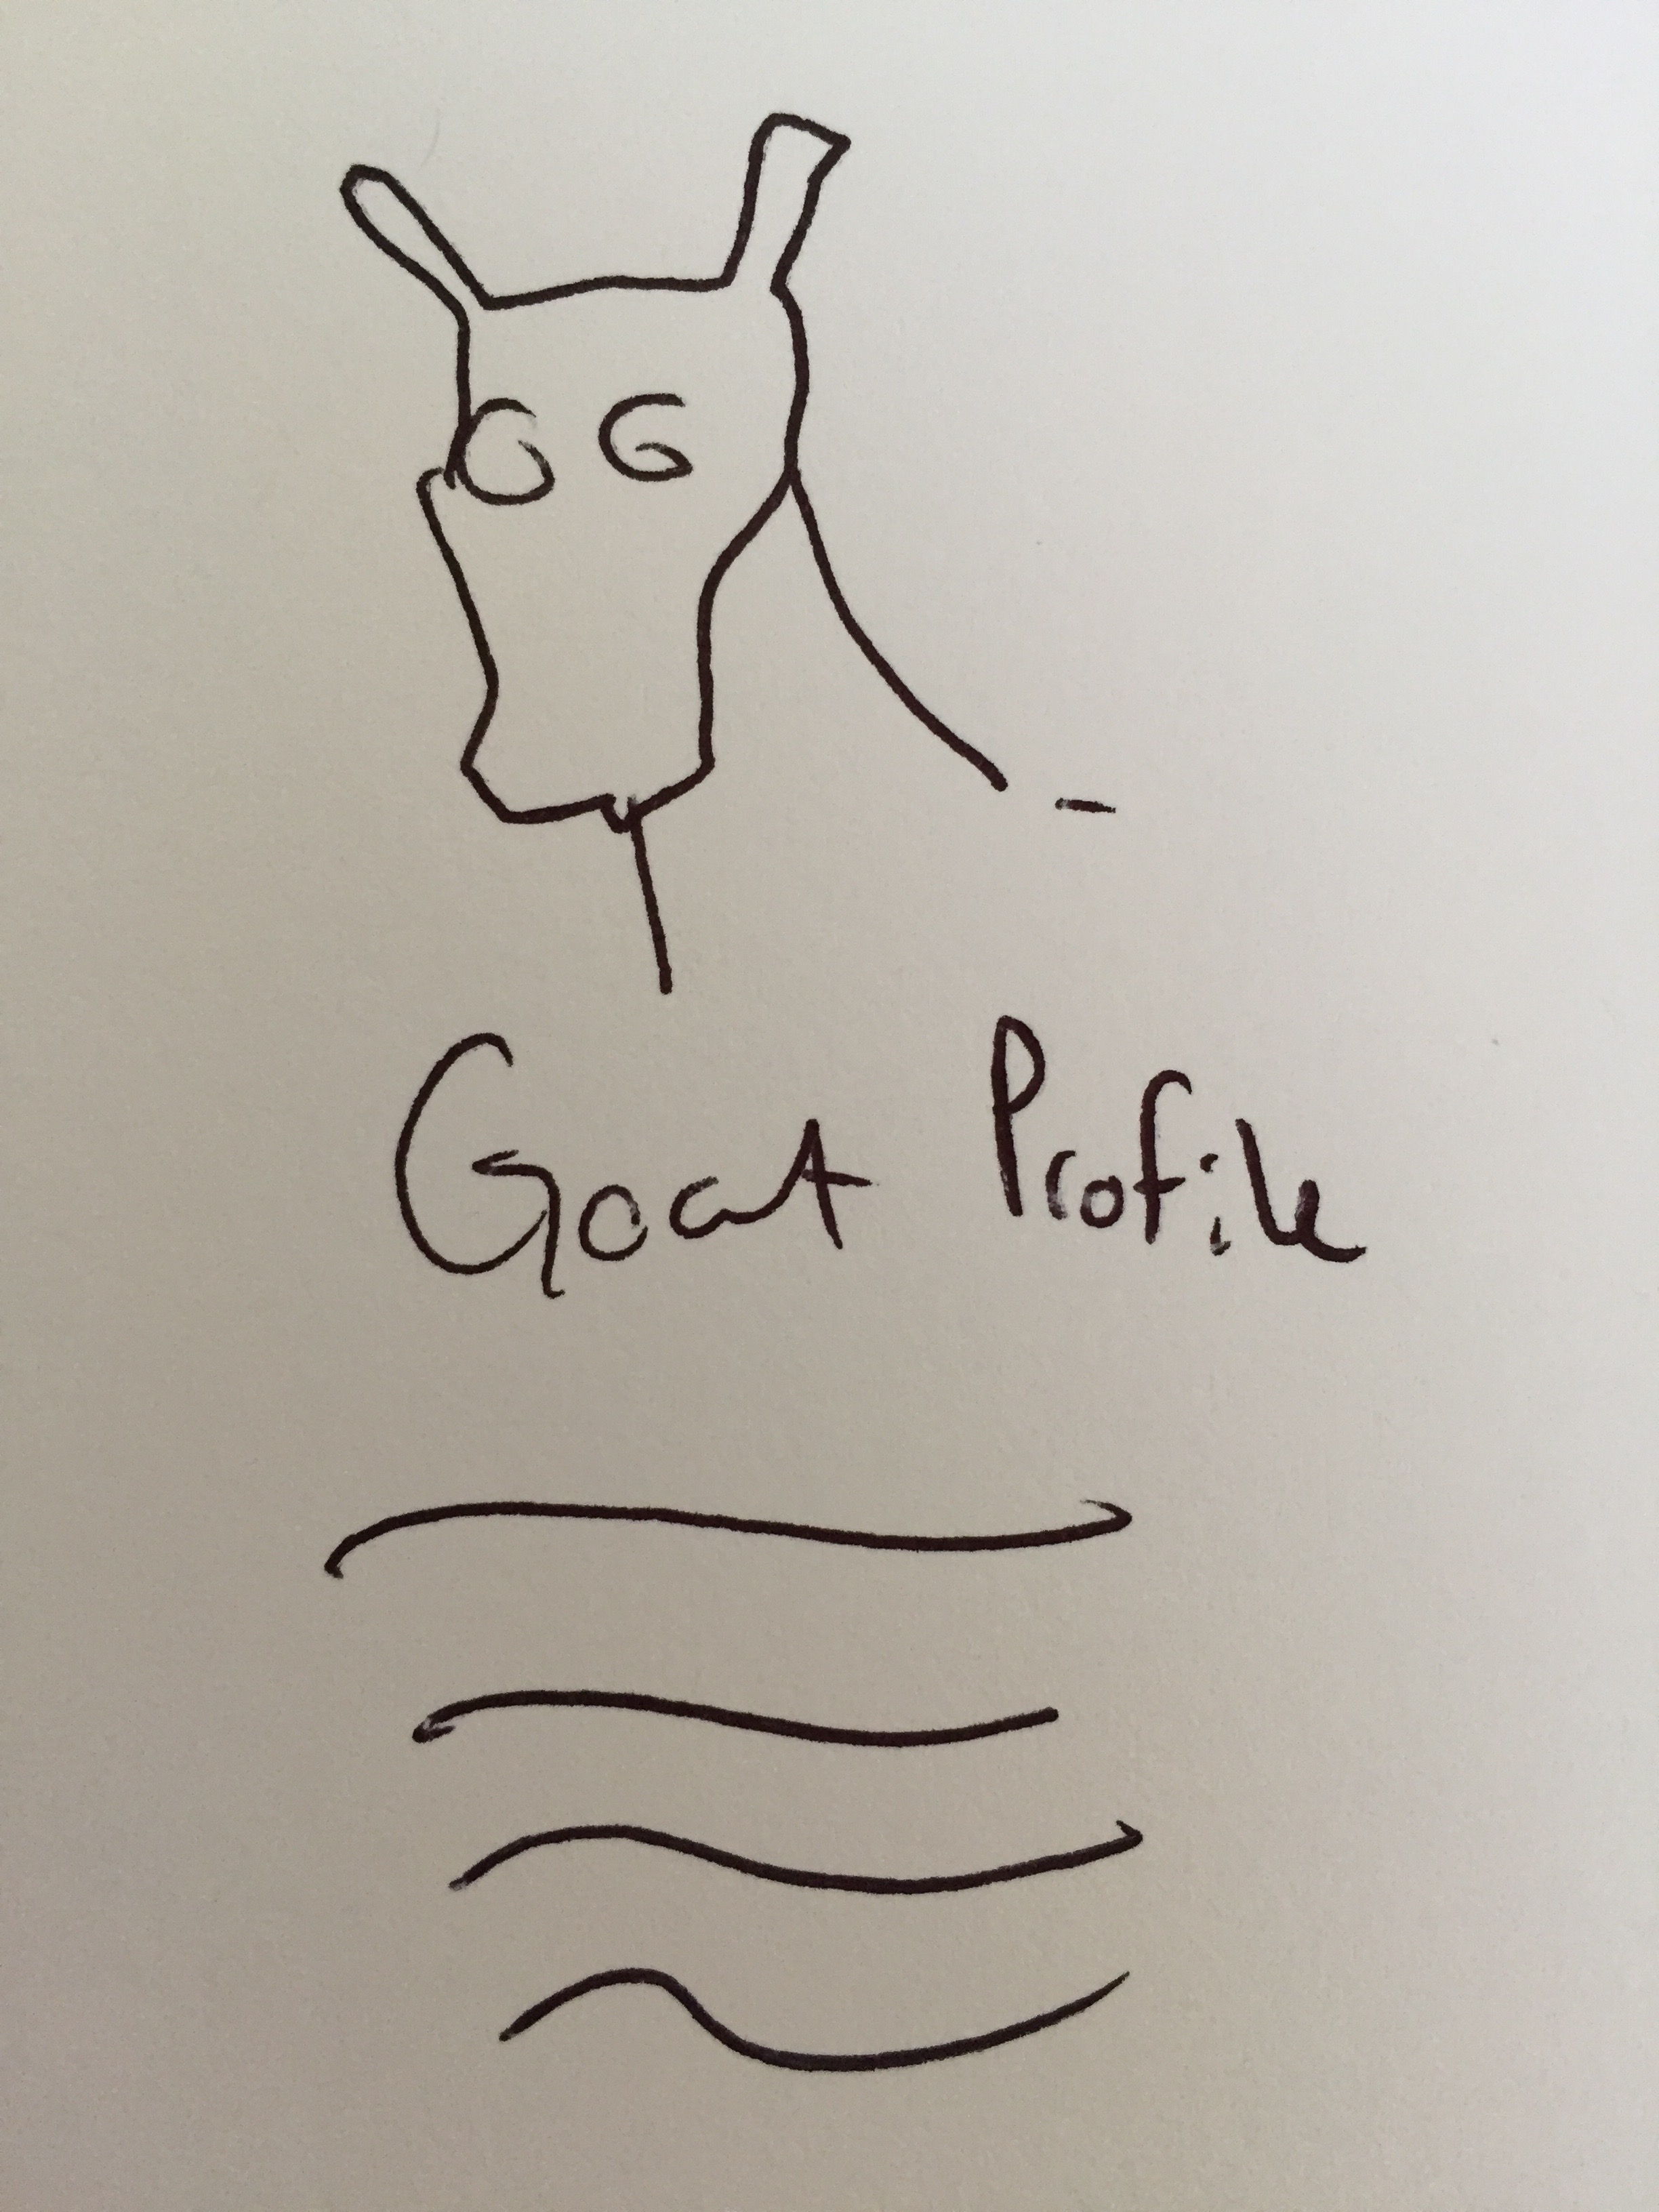 Goat Profile